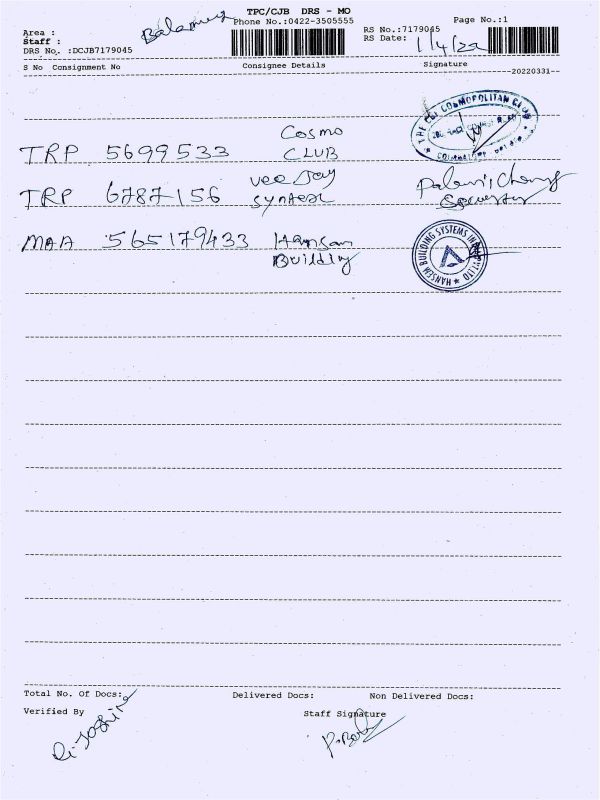 TPC/CJB DRS - MO
Phone No.:0422-3505555
Page No.:1
Area :
Staff :
DRS No. :DCJB7179045
RS No.:7179045
RS Date: 1/4/22
S No Consignment No Consignee Details Signature
20220331
TRP 5699533 Cosmo CLUB
TRP 6787156 vee Jay syntex
MAA 565179433 Hansan Building
HANSEN BUILDING SYSTEMS
Total No. Of Docs: Delivered Docs: Non Delivered Docs:
Verified By Staff Signature